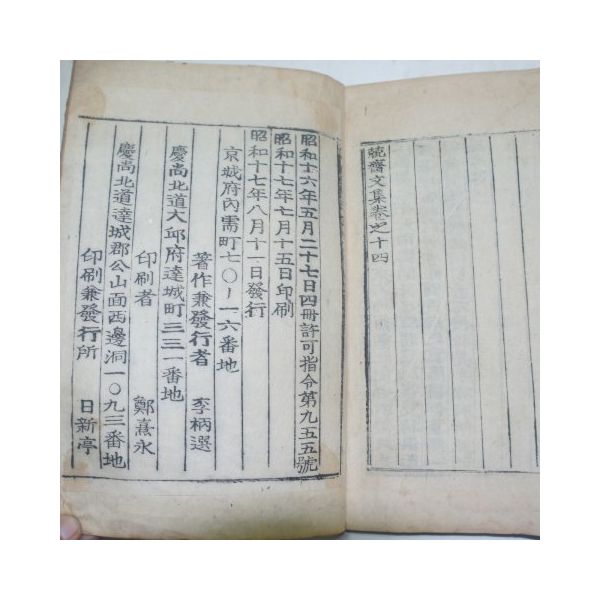 兢齋文集卷之十四
昭和十六年五月二十七日四冊許可指令第九五五號
昭和十七年七月十五日印刷
昭和十七年八月十一日發行
京城府內需町七〇ノ一六番地
著作兼發行者 李柄選
慶尚北道大邱府達城町三三一番地
印刷者 鄭熹永
慶尚北道達城郡公山面西邊洞一〇九三番地
印刷兼發行所 日新亭